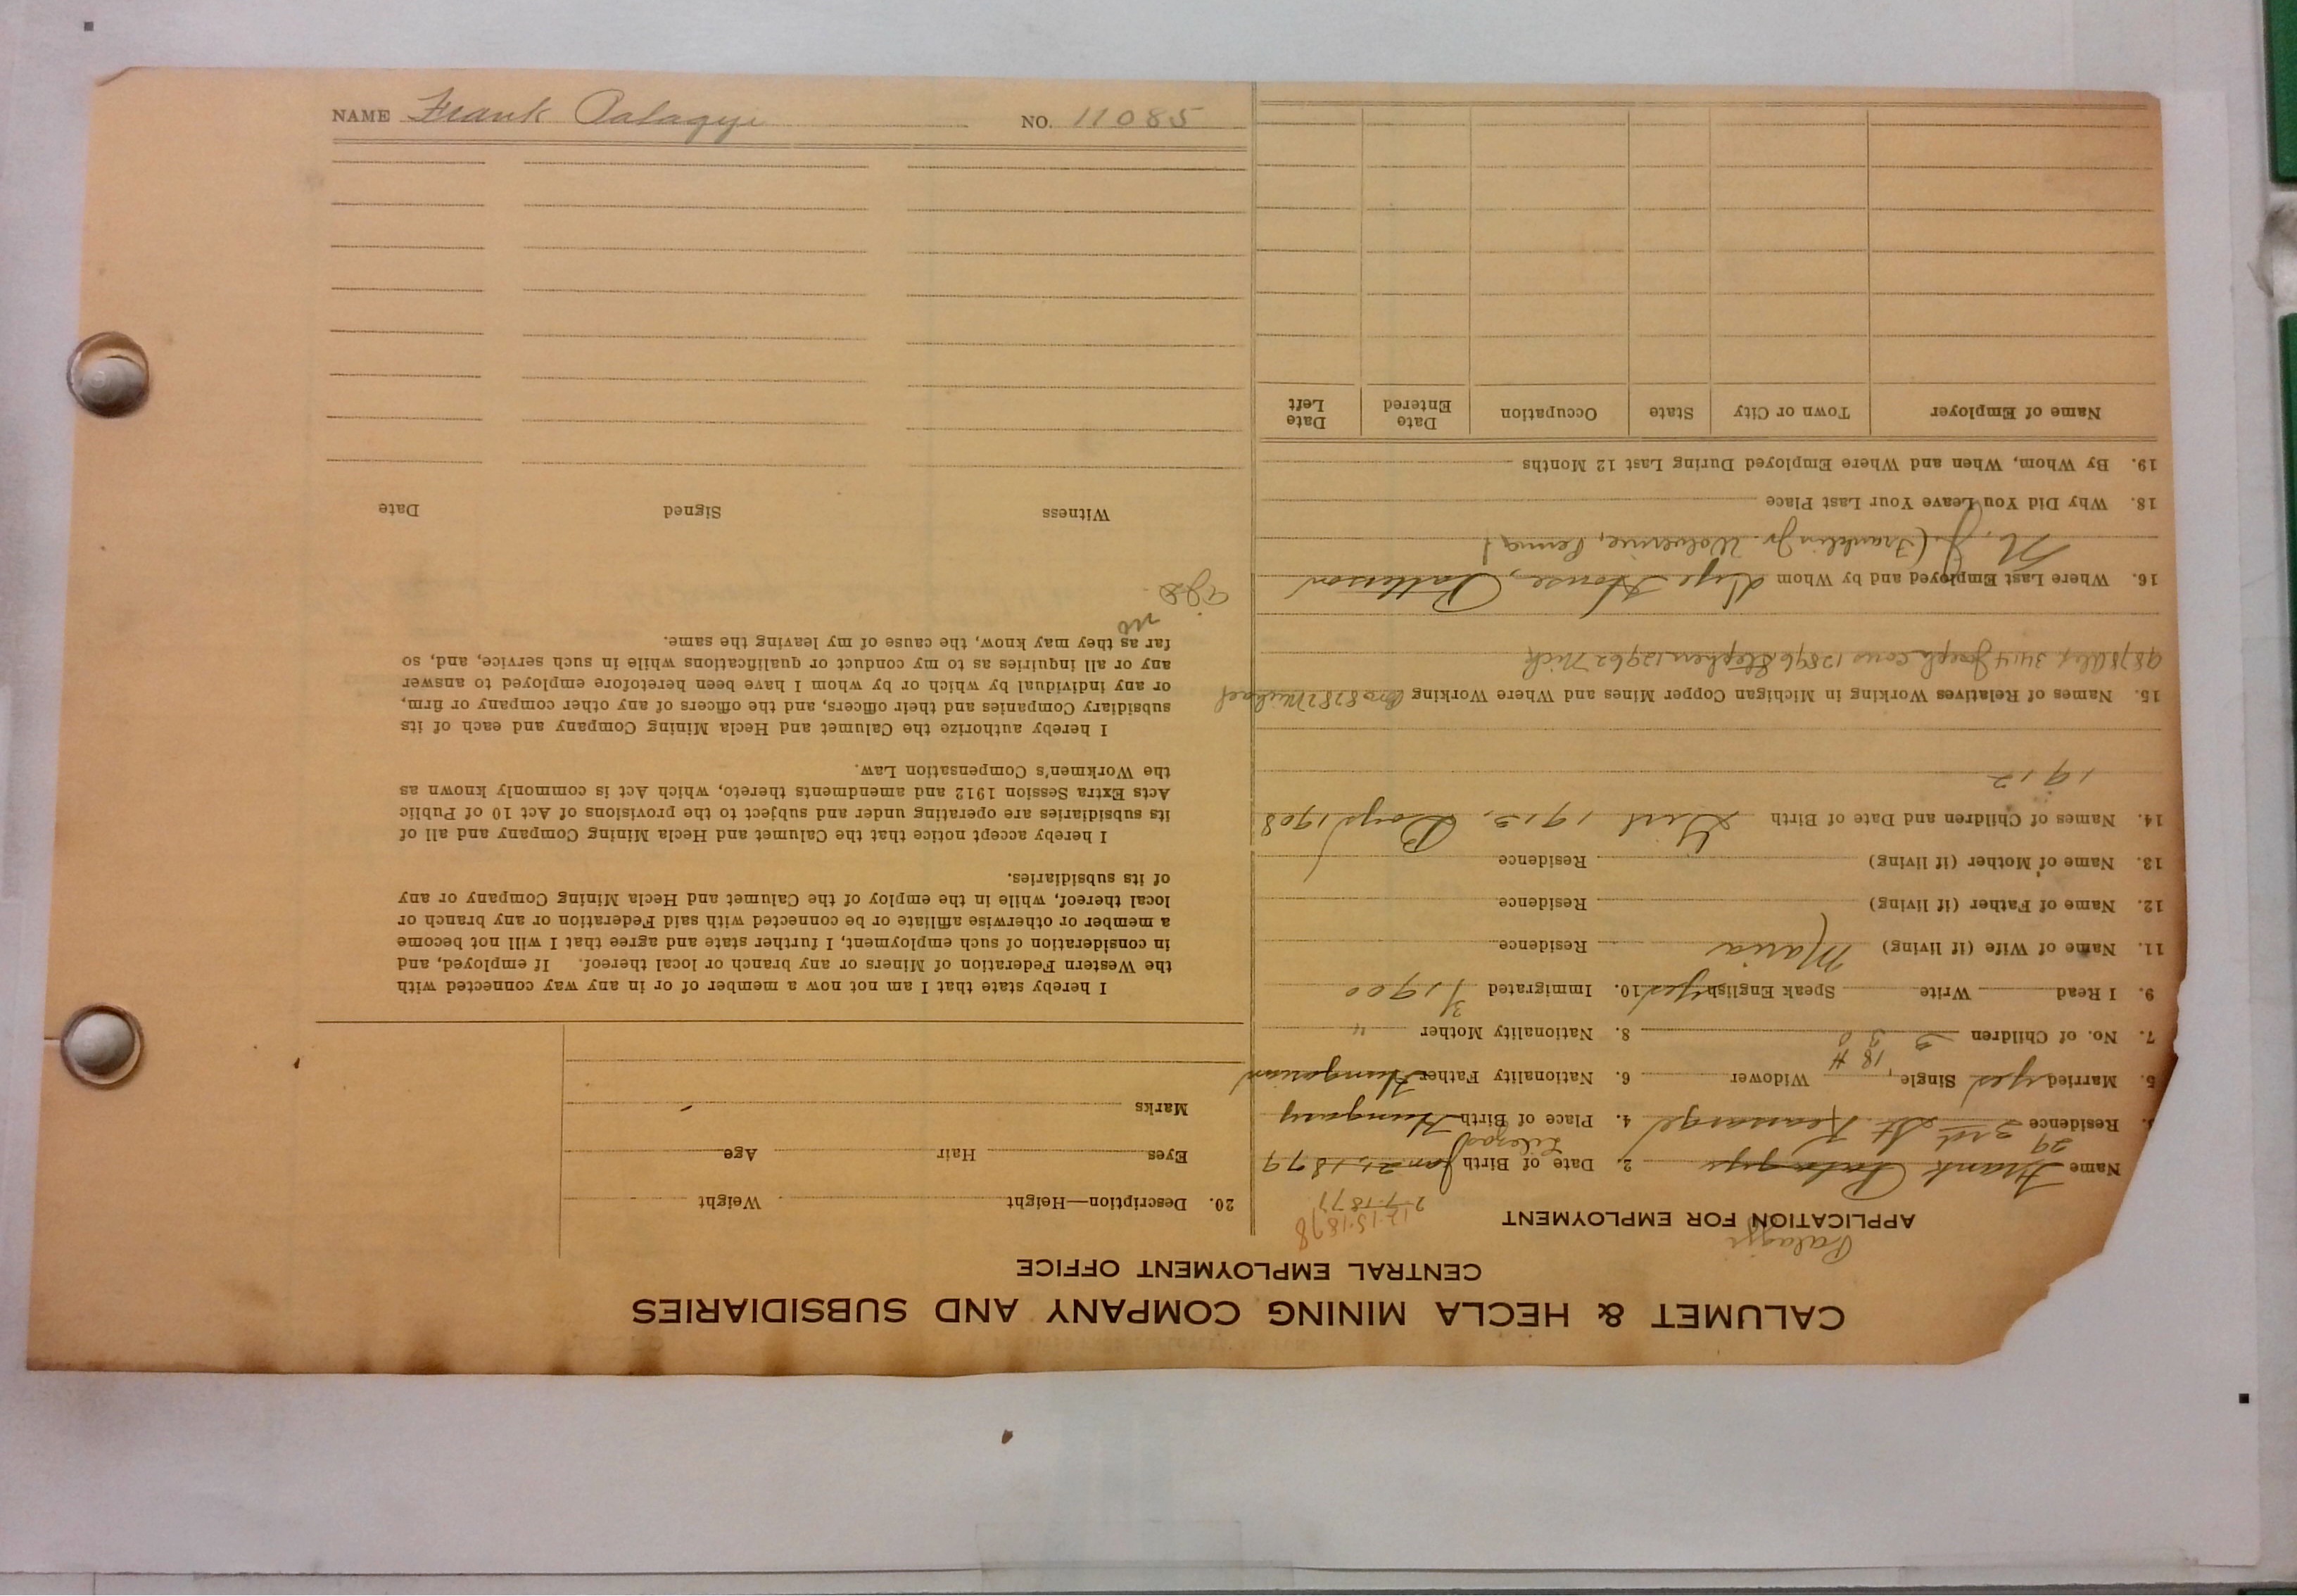 CALUMET & HECLA MINING COMPANY AND SUBSIDIARIES
CENTRAL EMPLOYMENT OFFICE
Palagyi
APPLICATION FOR EMPLOYMENT
12-15-1878
2-7-1877
Name Frank Palagyi 2. Date of Birth Jan 21, 1879
29
3. Residence 3rd St. Kearsarge 4. Place of Birth Hungary
5. Married yes Single Widower 6. Nationality Father Hungarian
18 #
7. No. of Children 3 8. Nationality Mother "
9. I Read Write Speak English yes 10. Immigrated 3/1900
11. Name of Wife (if living) Maria Residence
12. Name of Father (if living) Residence
13. Name of Mother (if living) Residence
14. Names of Children and Date of Birth Girl 1913, Boys 1908
1912
15. Names of Relatives Working in Michigan Copper Mines and Where Working Bro 8282 Michael
9878 Alex 3414 Joseph cous 12896 Stephen 12962 Mick
16. Where Last Employed and by Whom Dye House, Patterson
N. J. (Franklin Jr. Wolverine, Penna)
18. Why Did You Leave Your Last Place
19. By Whom, When and Where Employed During Last 12 Months
Name of Employer Town or City State Occupation Date Entered Date Left
20. Description—Height Weight
Eyes Hair Age
Marks
I hereby state that I am not now a member of or in any way connected with
the Western Federation of Miners or any branch or local thereof. If employed, and
in consideration of such employment, I further state and agree that I will not become
a member or otherwise affiliate or be connected with said Federation or any branch or
local thereof, while in the employ of the Calumet and Hecla Mining Company or any
of its subsidiaries.
I hereby accept notice that the Calumet and Hecla Mining Company and all of
its subsidiaries are operating under and subject to the provisions of Act 10 of Public
Acts Extra Session 1912 and amendments thereto, which Act is commonly known as
the Workmen's Compensation Law.
I hereby authorize the Calumet and Hecla Mining Company and each of its
subsidiary Companies and their officers, and the officers of any other company or firm,
or any individual by which or by whom I have been heretofore employed to answer
any or all inquiries as to my conduct or qualifications while in such service, and, so
far as they may know, the cause of my leaving the same.
no
Witness Signed Date
NAME Frank Palagyi NO. 11085